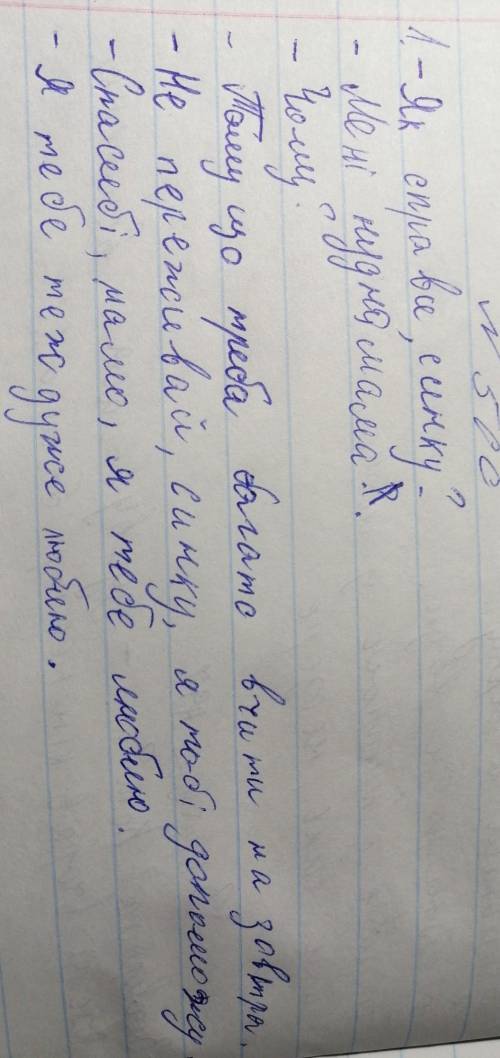 1. - Як справи, синку?
- Мені нудно, мама.
- Чому?
- Тому що треба багато вчити на завтра.
- Не переживай, синку, я тобі допоможу
- Спасибі, мамо, я тебе люблю.
- Я тебе теж дуже люблю.